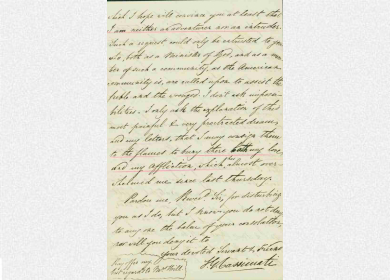 which I hope will convince you at least that
I am neither an adventurer nor an intruder
Such a request could only be intrusted to you
who, both as a Minister of God, and as a mem
ber of such a community, as the American
community is, are called upon to assist the
feeble and the wronged I don't ask impossi
bilities. I only ask the explanation of this
most painful & very protracted drama,
and my letters, that I may consign them
to the flames to bury there both my love,
and my affliction, which almost over
whelmed me since last thursday.
Pardon me, Revd. Sir, for disturbing
you as I do, but I know you do not deny
to any one the balm of your consolation,
nor will you deny it to
your devoted Servant & Friend